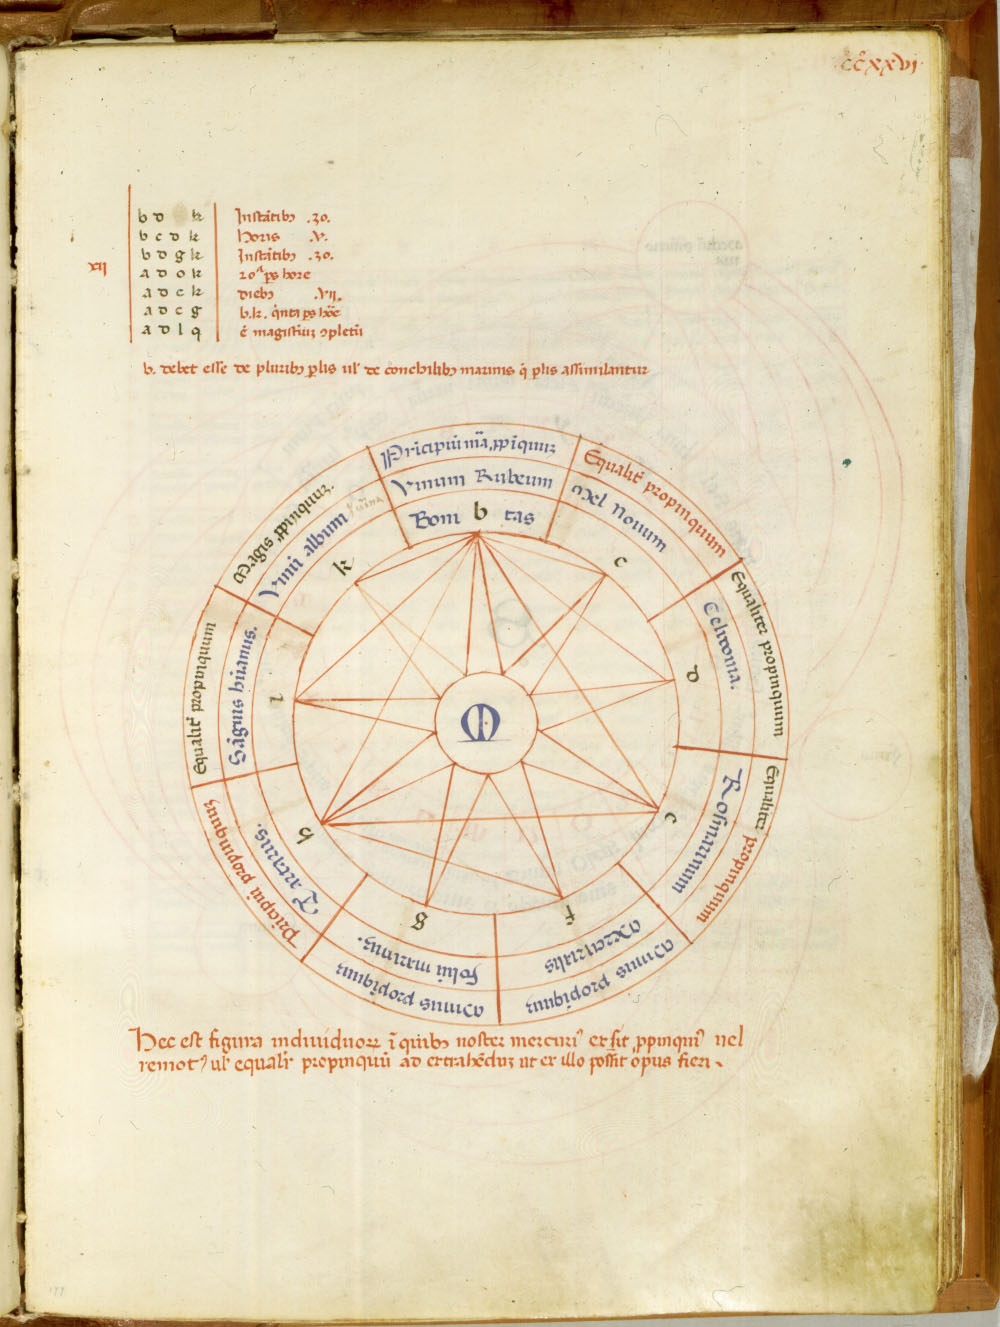 CCXXVI
b d k Instātibꝫ .30.
b c d k Horis .V.
b d g k Instātibꝫ .30.
XII
a d o k 20ª ps hore
a d c k diebꝫ .VII.
a d c g b.k. q̇nta ps hōe
a d l q ē magistiuꝫ ɔpletū
b. debet esse de pluribꝫ plis ul' de conchilibꝫ marinis q̇ plis assimilantur
Pricipiū mā ꝓpīquuꝫ
Vinum Rubeum
Boni b tas
Equalit' propinquum
Mel Nouum
c
Equaliter propinquum
Celidonia.
d
Equaliter propinquum
Rosmarinum
e
Minus propiquuꝫ
Mercurialis
f
Minus propiquuꝫ
Folii marinuꝫ.
g
Pricipiū propinquuꝫ
Tartarus.
h
Equalit' propinquum
Sāguis hūanus.
i
Magis ꝓpinquuꝫ.
Vinū album
k
M
Hec est figura indiuiduoꝝ ī quibꝫ noster mercuri' et sit ꝓpinqui' uel
remot' ul' equalr' propinquū ad extrahēduꝫ ut ex illo possit opus fieri